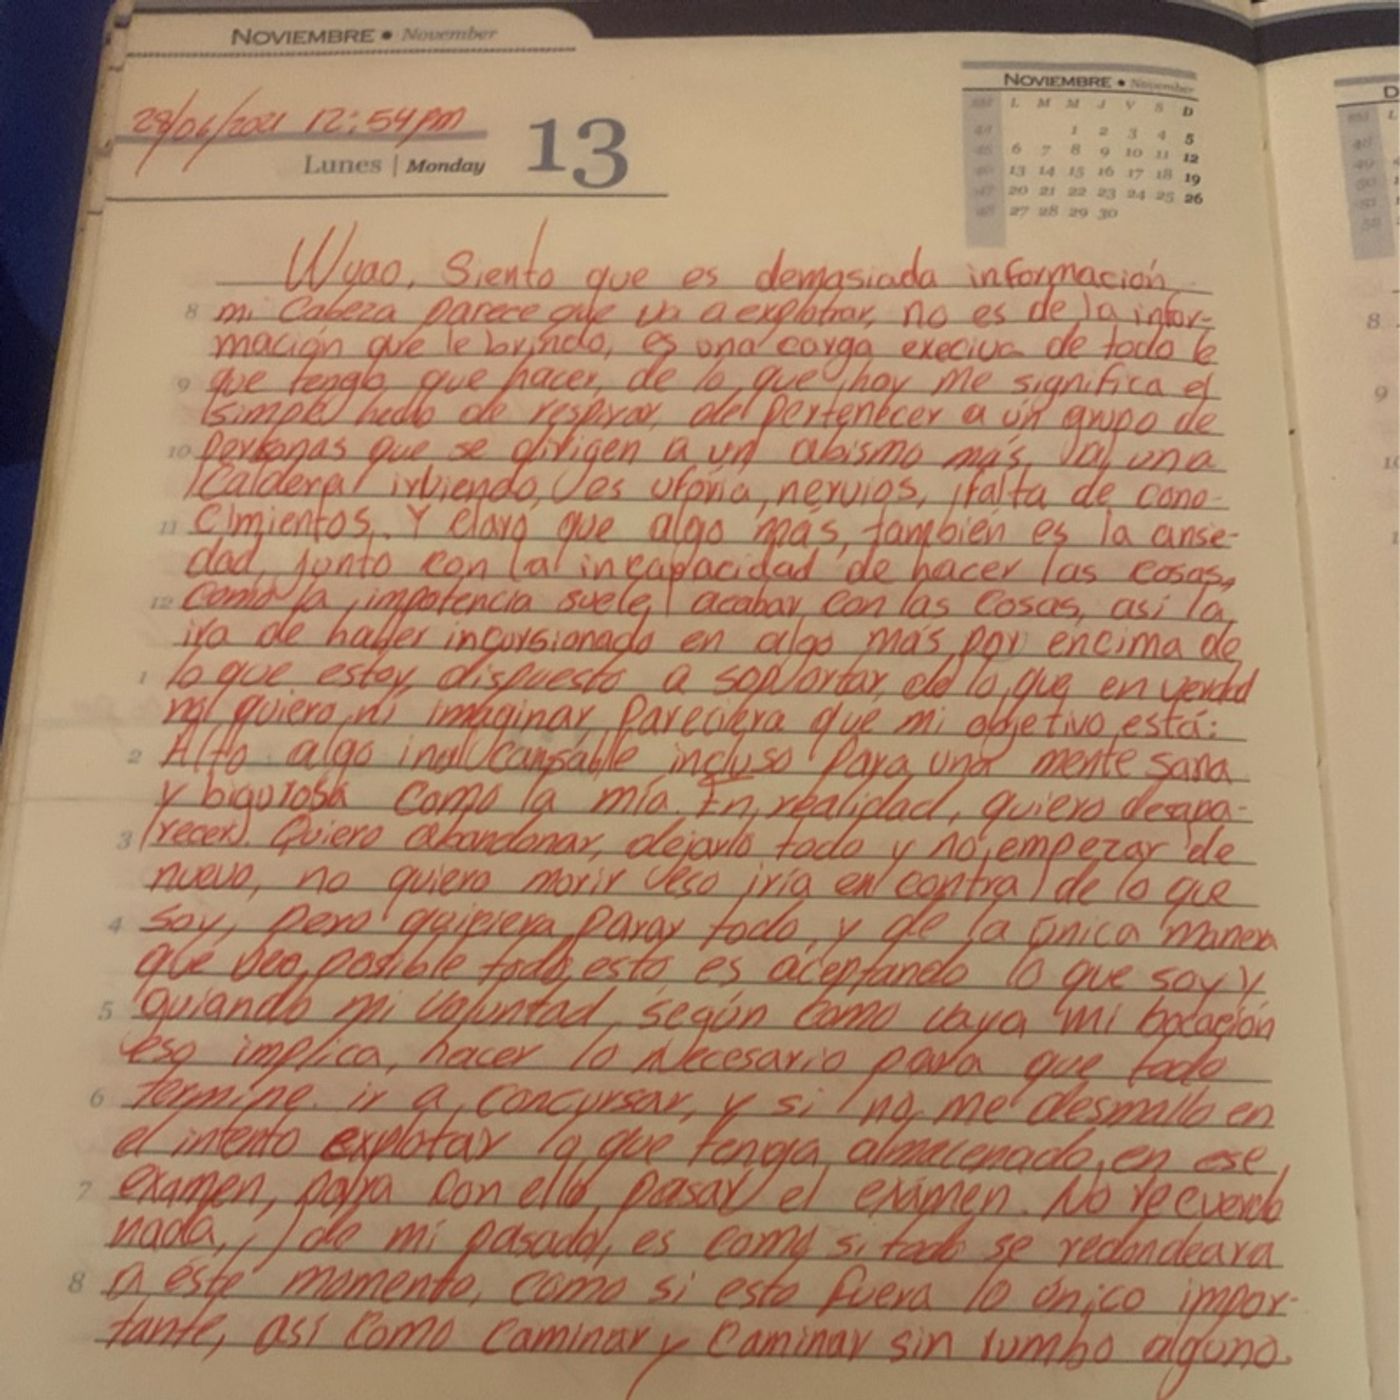 NOVIEMBRE • November
28/06/2021 12:54pm
Lunes | Monday 13
NOVIEMBRE • November
L M M J V S D
44 1 2 3 4 5
45 6 7 8 9 10 11 12
46 13 14 15 16 17 18 19
47 20 21 22 23 24 25 26
48 27 28 29 30
Wuao, Siento que es demasiada información
8 mi Cabeza parece que va a explotar, no es de la infor-
mación que le brindo, es una carga execiva de todo lo
9 que tengo que hacer, de lo que hoy me significa el
simple hecho de respirar, del pertenecer a un grupo de
10 personas que se dirigen a un abismo más, a una
Caldera irviendo, es uforia, nervios, falta de cono-
11 cimientos. Y claro que algo más, también es la anse-
dad, junto con la incapacidad de hacer las cosas,
12 como la impotencia suele acabar con las cosas, así la
ira de haber incursionado en algo más por encima de
1 lo que estoy dispuesto a soportar, de lo que en verdad
ni quiero ni imaginar, Pareciera que mi objetivo está:
2 Alto algo incansable incluso para una mente sana
y bigurosa como la mía. En realidad, quiero desapa-
3 recer. Quiero abandonar, dejarlo todo y no empezar de
nuevo, no quiero morir eso iría en contra de lo que
4 soy, pero quisiera parar todo, y de la única manera
que veo posible todo esto es aceptando lo que soy y
5 guiando mi voluntad, según como vaya mi bocación
eso implica, hacer lo Necesario para que todo
6 termine. ir a concursar, y si no me desmallo en
el intento explotar lo que tenga almacenado, en ese
7 examen, para con ello, pasar el exámen. No recuerdo
nada, de mi pasado, es como si todo se redondeara
8 a éste momento, como si esto fuera lo único impor-
tante, así como caminar y caminar sin rumbo alguno.